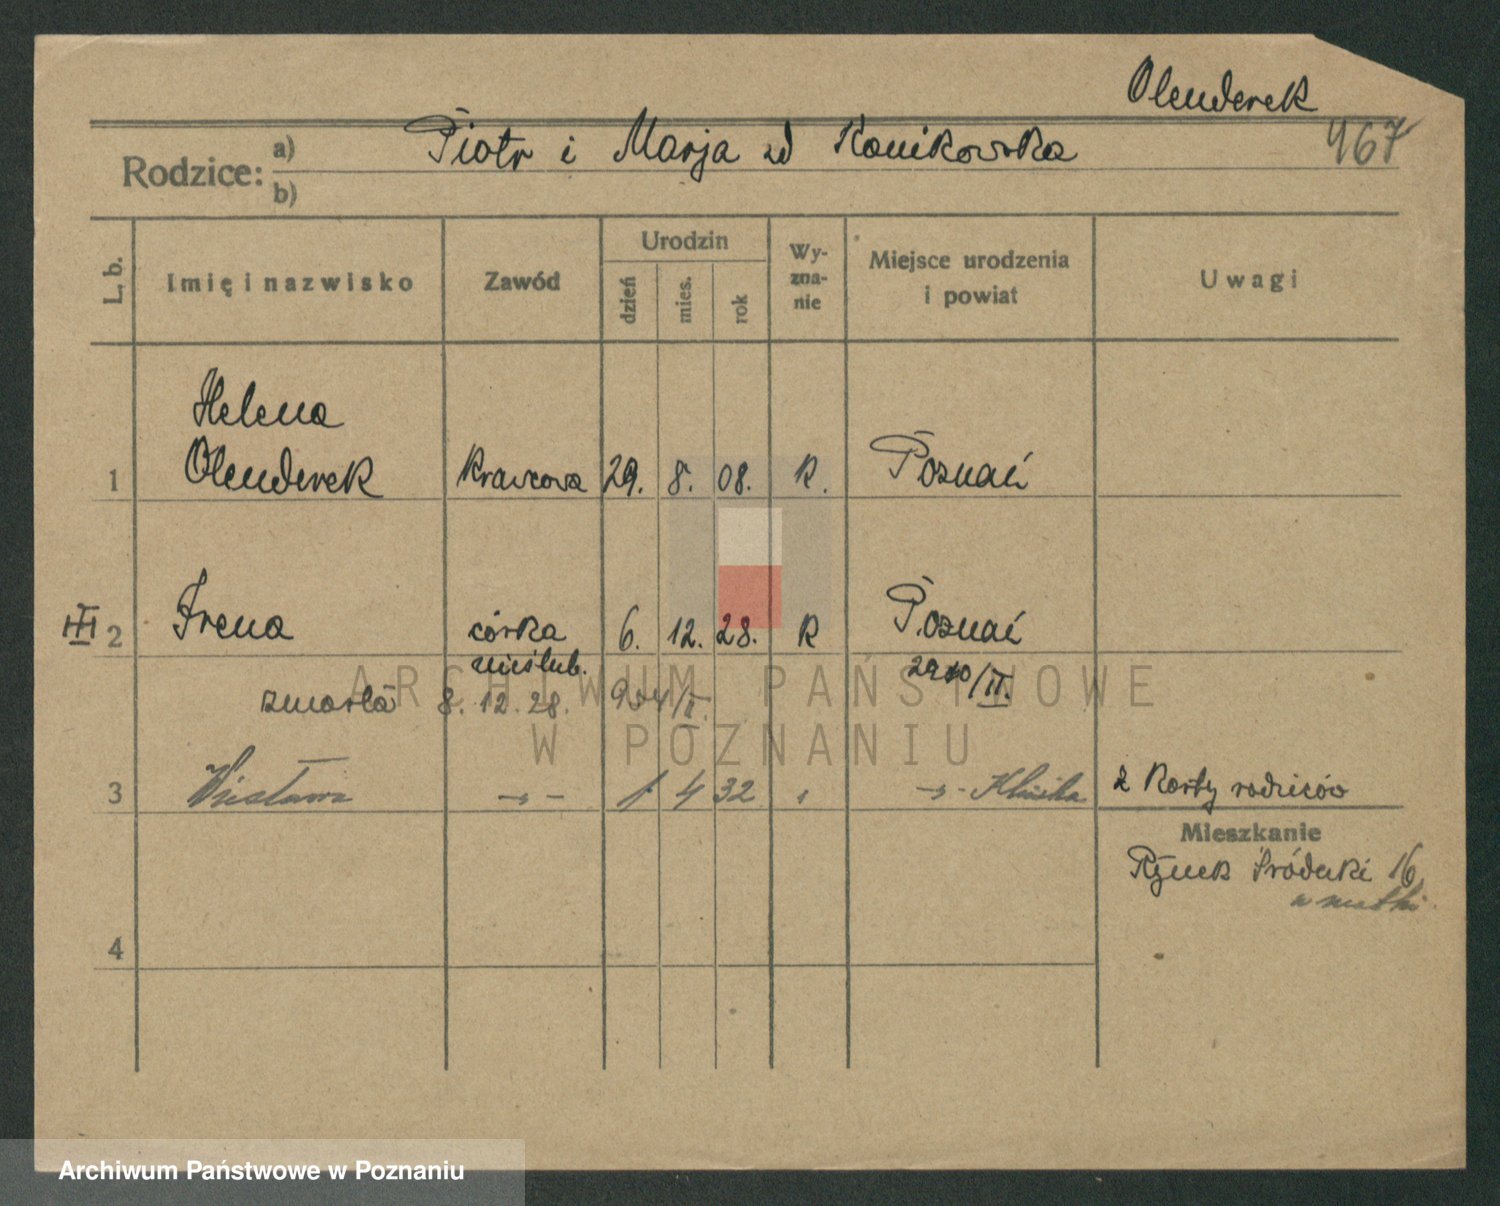 Olenderek
967
Rodzice: a) Piotr i Marja zd Konikowska
b)
L. b. Imię i nazwisko Zawód Urodzin dzień mies. rok Wy-zna-nie Miejsce urodzenia i powiat Uwagi
Helena
1 Olenderek krawcowa 29. 8. 08. R. Poznań
III 2 Irena córka 6. 12. 28. R Poznań
nieślub. 2910/II.
zmarła 8. 12. 28. 954/II.
3 Wiesława -"- 1 4 32 " -"- Klinika z Karty rodziców
Mieszkanie
Rynek Śródecki 16
u matki.
4
ARCHIWUM PAŃSTWOWE
W POZNANIU
Archiwum Państwowe w Poznaniu